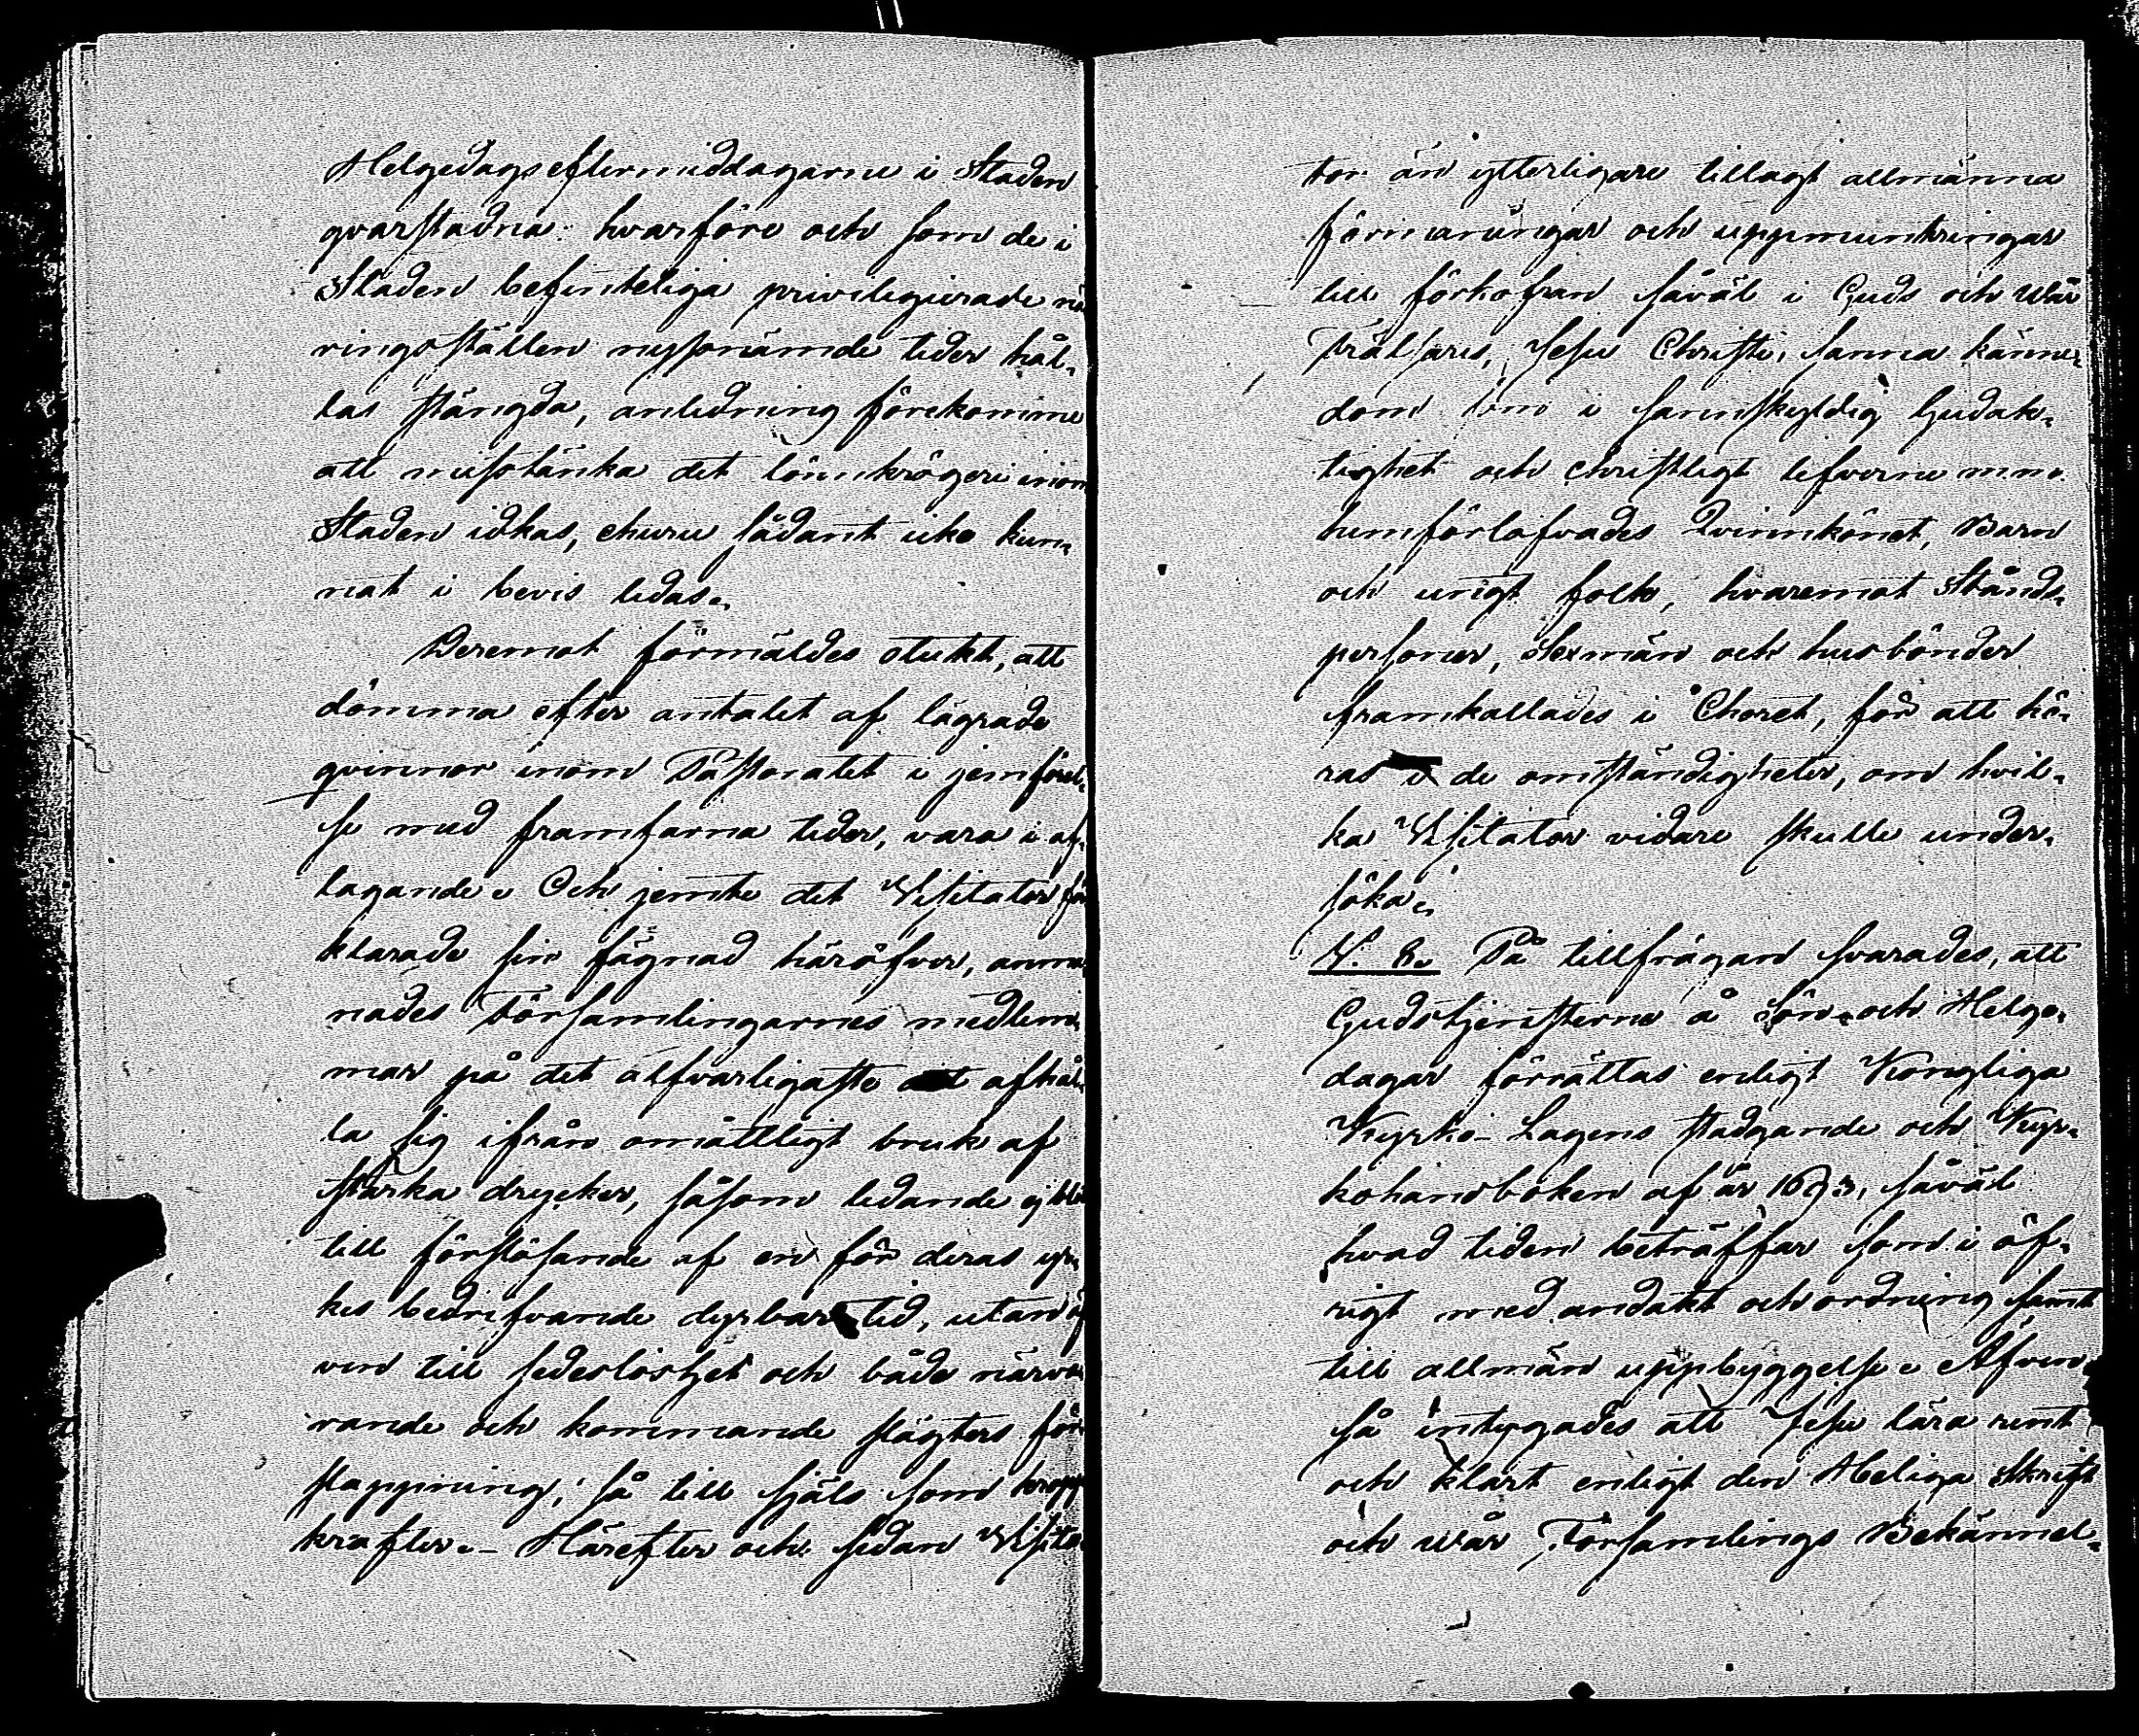 Helgedagseftermiddagarne i Staden
qvarstadna: hvarföre och som de i
Staden befinteliga privilegierade nä
ringsställen nyssnämde tider hål-
las stängda, anledning förekomme
att misstänka det lönnkrögeri inom
Staden idkas, churu sådant icke kun-
nat i bevis ledas.
Deremot förmäldes otukt, att
dömma efter antalet af lägrade
qvinnor inom Pastoratet i jemförel-
se med framfarna tider, vara i af-
tagande. Och jemte det Visitator för
klarade sin fägnad häröfver, anma-
nades Församlingarnes medlem-
mar på det alfvarligaste att afhål-
la sig ifrån omåttligt bruk af
starka drycker, såsom ledande ej blo
till förslösande af en för deras yr-
kes bedrifvande dyrbar tid, utan äf
ven till sedeslöshet och både närva-
rande och kommande slägters för
slappning, så till själs som kropps
krafter. – Härefter och sedan Visita-
tor än ytterligare tillagt allmänna
förmaningar och uppmuntringar
till förkofran såväl i Guds och wår
Frälsares, Jesu Christi, sanna känne-
dom som i sannskyldig Gudak-
tighet och christligt lefverne m.m.
hemförlofvades Qvinnkönet, Barn
och ungt folk, hvaremot Stånds-
personer, Sexmän och husbönder
framkallades i Choret, för att hö-
ras i de omständigheter, om hvil-
ka Visitator vidare skulle under-
söka.
N: 8. På tillfrågan svarades, att
Gudstjensterne å Sön- och Helge-
dagar förrättas enligt Kongliga
Kyrko-Lagens stadgande och Kyr-
kohandboken af år 1693, såväl
hvad tiden beträffar som i öf-
rigt med andakt och ordning samt
till allmän uppbyggelse. Äfven
så intygades att Jesu lära rent
och klart enligt den Heliga Skrift
och wår Församlings Bekännel-